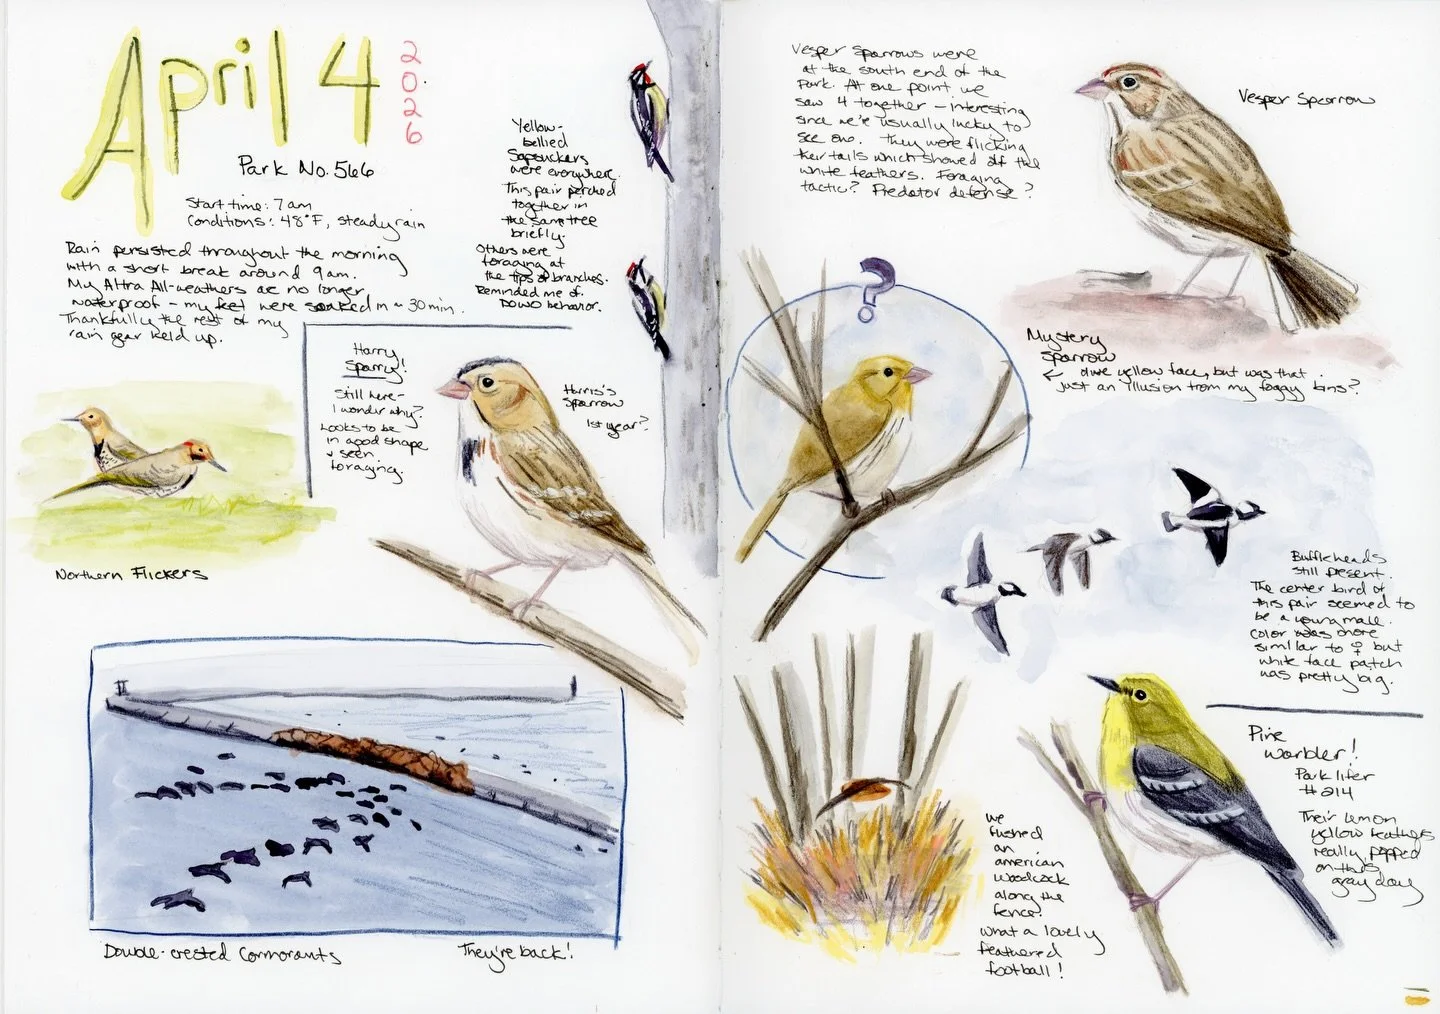 April 4
2026
Park No. 566
Start time: 7am
Conditions: 48°F, steady rain
Rain persisted throughout the morning
with a short break around 9am.
My Altra All-weathers are no longer
waterproof - my feet were soaked in ~ 30 min.
Thankfully the rest of my
rain gear held up.
Yellow-
bellied
Sapsuckers
were everywhere.
This pair perched
together in
the same tree
briefly.
Others were
foraging at
the tips of branches.
Reminded me of
DOWO behavior.
Harry
Sparry!
Still here-
I wonder why?
Looks to be
in good shape
& seen
foraging.
Harris's
Sparrow
1st year?
Northern Flickers
Double-crested Cormorants
They're back!
Vesper Sparrows were
at the south end of the
park. At one point we
saw 4 together - interesting
since we're usually lucky to
see one. They were flicking
their tails which showed off the
white feathers. Foraging
tactic? Predator defense?
Vesper Sparrow
?
Mystery
Sparrow
← olive yellow face, but was that
just an illusion from my foggy bins?
Buffleheads
still present.
The center bird of
this pair seemed to
be a young male.
Color was more
similar to ♀ but
white face patch
was pretty big.
Pine
Warbler!
Park lifer
#214
Their lemon
yellow feathers
really popped
on this
gray day
We
flushed
an
american
woodcock
along the
fence.
What a lovely
feathered
football!